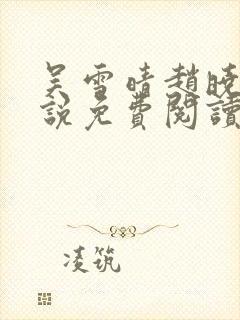 吴雪晴趙曉
說免費閱讀
凌筑